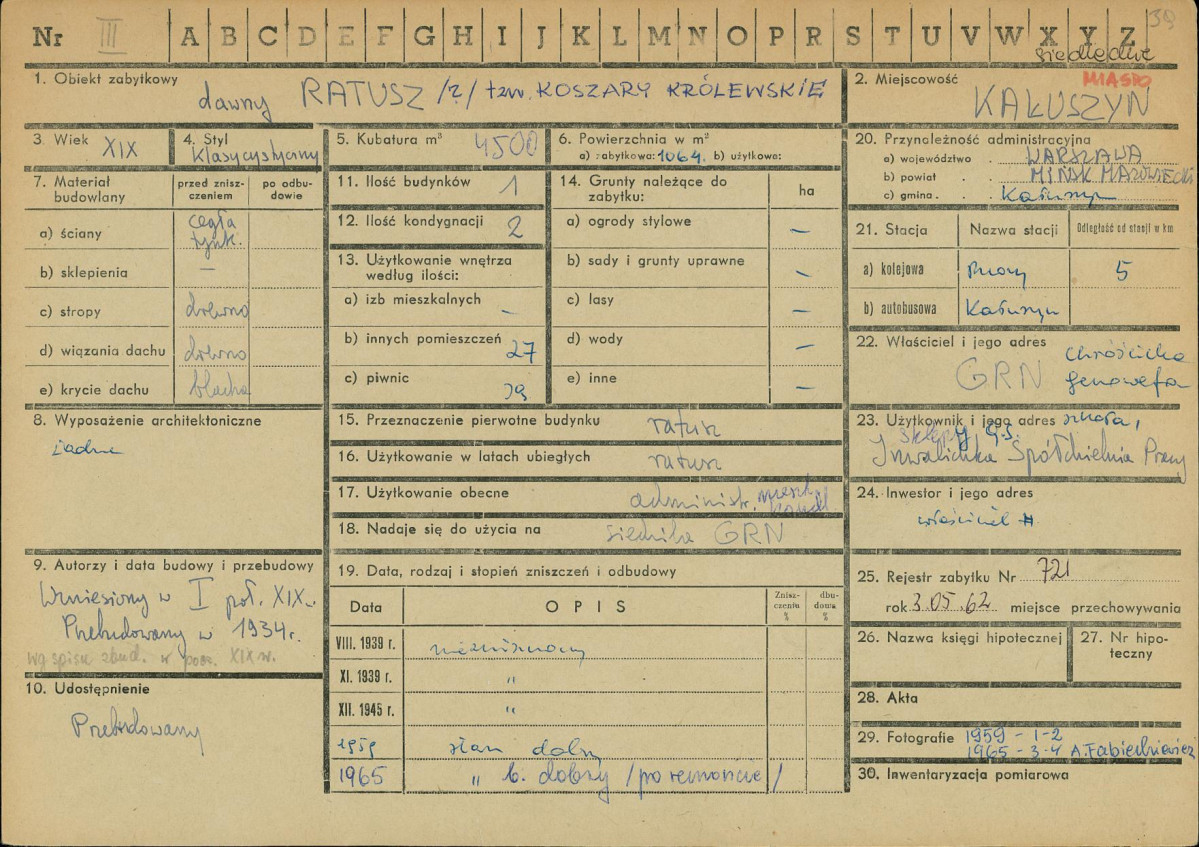 Nr III A B C D E F G H I J K L M N O P R S T U V W X Y Z 39
siedleckie
1. Obiekt zabytkowy
dawny RATUSZ /?/ tzw. KOSZARY KRÓLEWSKIE
2. Miejscowość MIASTO
KAŁUSZYN
3. Wiek XIX
4. Styl
Klasycystyczny
5. Kubatura m³ 4500
6. Powierzchnia w m²
a) zabytkowa: 1064. b) użytkowa:
20. Przynależność administracyjna
a) województwo . WARSZAWA
b) powiat . . MIŃSK MAZOWIECKI
c) gmina . . . Kałuszyn
7. Materiał budowlany
przed znisz-
czeniem
po odbu-
dowie
a) ściany cegła
tynk.
b) sklepienia —
c) stropy drewno
d) wiązania dachu drewno
e) krycie dachu blacha
11. Ilość budynków 1
12. Ilość kondygnacji 2
13. Użytkowanie wnętrza
według ilości:
a) izb mieszkalnych –
b) innych pomieszczeń 27
c) piwnic 19
14. Grunty należące do
zabytku:
ha
a) ogrody stylowe —
b) sady i grunty uprawne —
c) lasy —
d) wody —
e) inne —
21. Stacja Nazwa stacji Odległość od stacji w km
a) kolejowa Mrozy 5
b) autobusowa Kałuszyn
22. Właściciel i jego adres
GRN Chróścicka
Genowefa
8. Wyposażenie architektoniczne
żadne
15. Przeznaczenie pierwotne budynku ratusz
16. Użytkowanie w latach ubiegłych ratusz
17. Użytkowanie obecne administr. mieszk.
18. Nadaje się do użycia na siedziba GRN
23. Użytkownik i jego adres szkoła,
sklepy G.S.
Inwalidzka Spółdzielnia Pracy
24. Inwestor i jego adres
właściciel
9. Autorzy i data budowy i przebudowy
Wzniesiony w I poł. XIX w.
Przebudowany w 1934 r.
wg spisu zbud. w pocz. XIX w.
10. Udostępnienie
Przebudowany
19. Data, rodzaj i stopień zniszczeń i odbudowy
Data OPIS Znisz-
czeniu
% dbu-
dowa
%
VIII. 1939 r. niezniszczony
XI. 1939 r. "
XII. 1945 r. "
1959 stan dobry
1965 " b. dobry /po remoncie/
25. Rejestr zabytku Nr 721
rok 3.05.62 miejsce przechowywania
26. Nazwa księgi hipotecznej
27. Nr hipo-
teczny
28. Akta
29. Fotografie 1959 - 1-2
1965 - 3-4 A. Fabierkiewicz
30. Inwentaryzacja pomiarowa